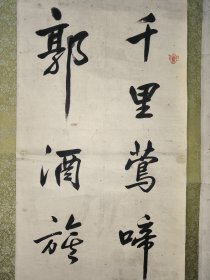 千里莺啼
郭酒旗